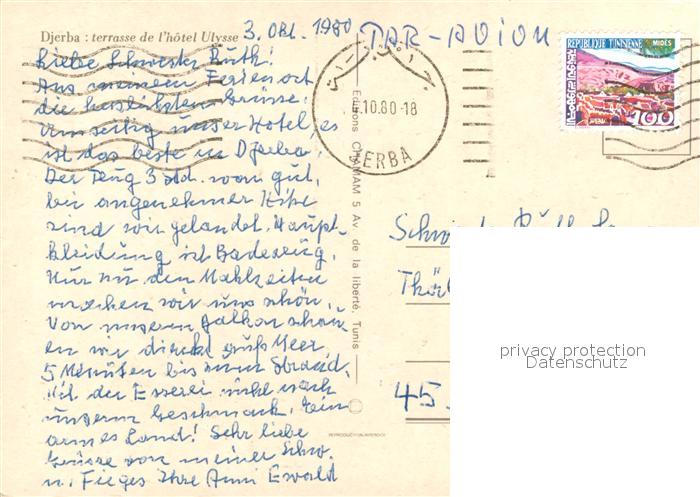 Djerba : terrasse de l'hôtel Ulysse
3. Okt. 1980
PAR-AVION
Liebe Schwester Ruth!
Aus meinem Ferienort
die herzlichsten Grüsse.
Umseitig unser Hotel, es
ist das beste in Djerba,
Der Flug 3 Std. war gut,
bei angenehmer Hitze
sind wir gelandet. Haupt-
kleidung ist Badeanzug,
Nur zu den Mahlzeiten
machen wir uns schön.
Von unserem Balkon schau-
en wir direkt aufs Meer,
5 Minuten bis zum Strand.
Mit der Esserei nicht nach
unserm Geschmack. Ein
armes Land! Sehr liebe
Grüsse von meiner Schw.
u. Ihre Anni Ewald
REPUBLIQUE TUNISIENNE
MIDES
100
.10.80-18
DJERBA
Editions CHAMAM 5 Av. de la liberté, Tunis
REPRODUCTION INTERDITE
45
privacy protection
Datenschutz